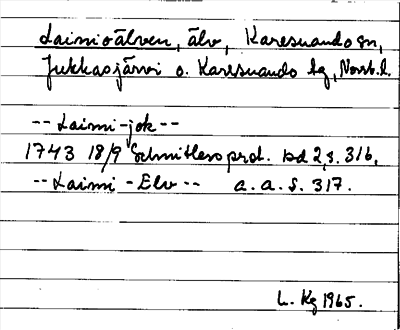 Lainioälven, älv, Karesuando sn,
Jukkasjärvi o. Karesuando lg, Norrb.l.
-- Laimi-jok --
1743 18/9 Schnitlers prot. bd 2, s. 316.
-- Laimi - Elv -- a. a. s. 317.
L. Kg 1965.